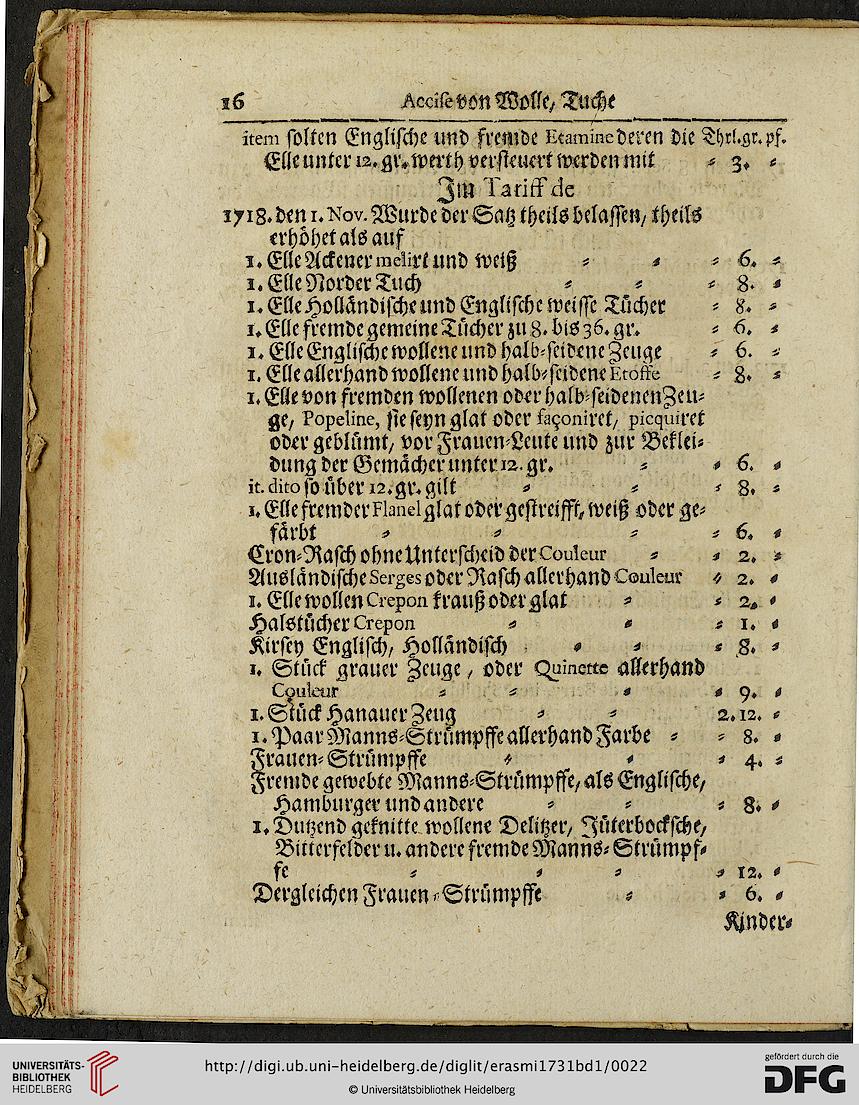 16 Accise von Wolle, Tuche
item solten Englische und fremde Etamine deren die Thrl. gr. pf.
Elle unter 12. gr. werth versteuert werden mit = 3. =
Im Tariff de
1718. den 1. Nov. Wurde der Satz theils belassen, theils
erhöhet als auf
1. Elle Ackener melirt und weiß = = = 6. =
1. Elle Norder Tuch = = = 8. =
1. Elle Holländische und Englische weisse Tücher = 8. =
1. Elle fremde gemeine Tücher zu 8. bis 36. gr. = 6. =
1. Elle Englische wollene und halb-seidene Zeuge = 6. =
1. Elle allerhand wollene und halb-seidene Etoffe = 8. =
1. Elle von fremden wollenen oder halb-seidenen Zeu-
ge, Popeline, sie seyn glat oder façoniret, picquiret
oder geblümt, vor Frauen-Leute und zur Beklei-
dung der Gemächer unter 12. gr. = = 6. =
it. dito so über 12. gr. gilt = = = 8. =
1. Elle fremder Flanel glat oder gestreifft, weiß oder ge-
färbt = = = = 6. =
Cron-Rasch ohne Unterscheid der Couleur = = 2. =
Ausländische Serges oder Rasch allerhand Couleur = 2. =
1. Elle wollen Crepon krauß oder glat = = 2. =
Halstücher Crepon = = = 1. =
Kirsey Englisch, Holländisch = = = 8. =
1. Stück grauer Zeuge, oder Quinette allerhand
Couleur = = = = 9. =
1. Stück Hanauer Zeug = = 2. 12. =
1. Paar Manns-Strümpffe allerhand Farbe = = 8. =
Frauen-Strümpffe = = = 4. =
Fremde gewebte Manns-Strümpffe, als Englische,
Hamburger und andere = = = 8. =
1. Dutzend geknitte wollene Delitzer, Jüterbocksche,
Bitterfelder u. andere fremde Manns-Strümpf-
fe = = = = 12. =
Dergleichen Frauen-Strümpffe = = 6. =
Kinder-
UNIVERSITÄTS-
BIBLIOTHEK
HEIDELBERG
http://digi.ub.uni-heidelberg.de/diglit/erasmi1731bd1/0022
© Universitätsbibliothek Heidelberg
gefördert durch die
DFG